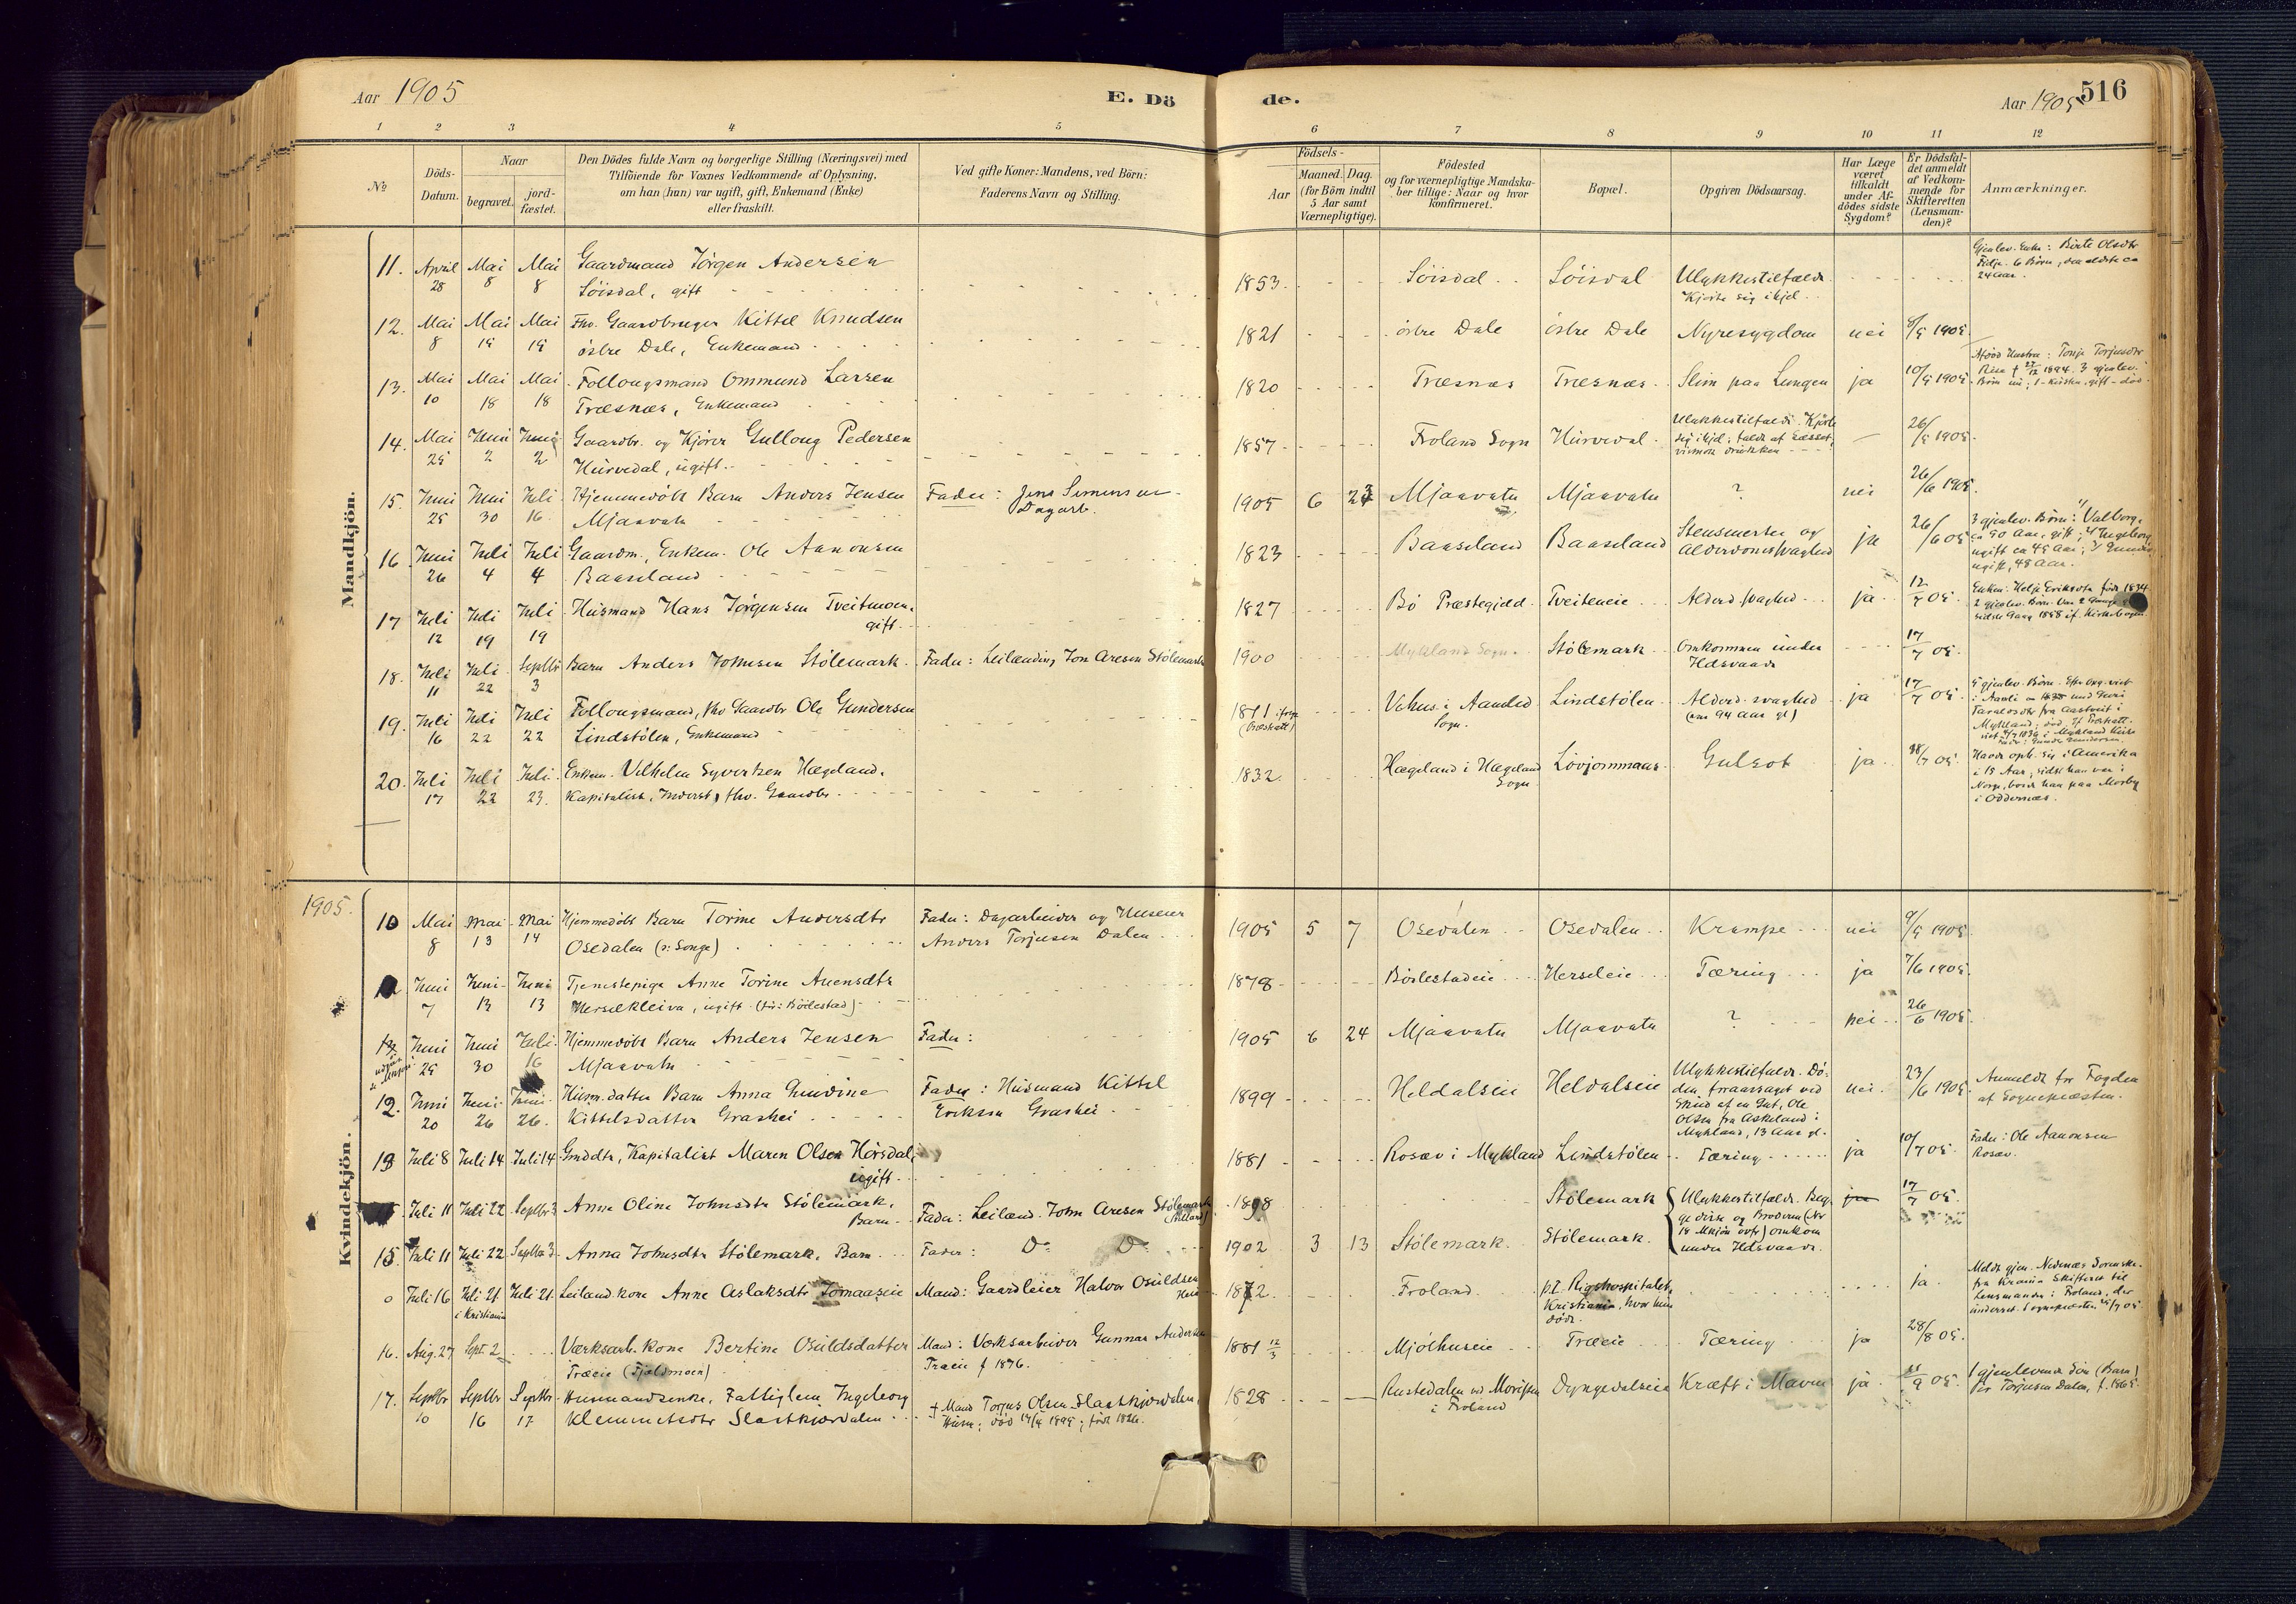 Aar 1905
E. Dö
de.
Aar 1905
516
1 2 3 4 5 6 7 8 9 10 11 12
№
Döds-
Datum.
Naar
begravet.
jord-
fæstet.
Den Dödes fulde Navn og borgerlige Stilling (Næringsvei) med
Tilföiende for Voxnes Vedkommende af Oplysning,
om han (hun) var ugift, gift, Enkemand (Enke)
eller fraskilt.
Ved gifte Koner: Mandens, ved Börn:
Faderens Navn og Stilling.
Födsels-
Aar
Maaned.
Dag.
(for Börn indtil
5 Aar samt
Værnepligtige).
Födested
og for værnepligtige Mandska-
ber tillige: Naar og hvor
konfirmeret.
Bopæl.
Opgiven Dödsaarsag.
Har Læge
været
tilkaldt
under Af-
dödes sidste
Sygdom?
Er Dödsfal-
det anmeldt
af Vedkom-
mende for
Skifteretten
(Lensman-
den)?
Anmærkninger.
Mandkjön.
11. April Mai Mai Gaardmand Jörgen Andersen
28 8 8 Söisdal, gift
1853 Söisdal Söisdal Ulykkestilfælde
Kjörte sig ihjel
Gjenlev. Enke: Birte Olsdtr
6 Börn, den ældste ca
24 aar.
12. Mai Mai Mai Fhv. Gaardbruger Kittel Knudsen
8 15 15 östre Dale, Enkemand
1821 östre Dale östre Dale Nyresygdom nei 8/5 1905
13. Mai Mai Mai Follougsmand Ommund Larsen
10 18 18 Træsnæs, Enkemand
1820 Træsnæs Træsnæs Slim paa Lungen ja 10/5 1905
Afdöd Hustru: Tonje Torjusdtr
1894. 3 gjenlev.
14. Mai Juni Juni Gaardbr. og Kjörer Gulloug Pedersen
25 2 2 Hurvedal, ugift
1857 Froland Sogn Hurvedal Ulykkestilfælde. Kjörte
sig ihjel; faldt af Læsset,
26/5 1905
15. Juni Juni Juli Hjemmedöbt Barn Anders Jensen
25 30 16 Mjaavatn
Fader: Jens Simensen
Dagarb.
1905 6 Mjaavatn Mjaavatn ? nei 26/6 1905.
16 Juni Juli Juli Gaardm., Enkem. Ole Aanonsen
26 4 4 Baaseland
1823 Baaseland Baaseland Stensmerter og
Alderdomssvaghed ja 26/6 05
3 gjenlev. Börn: 1/ Valborg,
ca 50 Aar, gift; 2/ Ingeborg
ugift ca 45 Aar; 3/ Gunder
ugift, 48 Aar.
17 Juli Juli Juli Husmand Hans Jörgensen Tveitmoen,
12 19 19 gift
1827 Bö Præstegjeld Tveiteneie Alderd. svaghed ja 12/7 05.
Enken: Helje Eriksdtr född 1834
2 gjenlev. Börn.
18. Juli Juli Septbr Barn Anders Johnsen Stölemark
11 22 3
Fader: Leilænding Jon Aresen Stölemark
1900 Mykland Sogn. Stölemark Omkommen under
Ildsvaade 17/7 05.
19. Juli Juli Juli Follougsmand, fhv Gaardbr Ole Gundersen
16 22 22 Lindstölen, Enkemand
1811 Vehus i Aamlid
Sogn. Lindstölen Alderd. svaghed
(om 94 Aar gl) ja 17/7 05.
5 gjenlev. Börn.
20. Juli Juli Juli Enkem. Vilhelm Syvertsen Hægeland,
17 22 23 Kapitalist, Inderst, fhv. Gaardbr.
1832 Hægeland i Hægeland
Sogn Lövjommaas Gulsot ja 18/7 05.
Havde oph. sig i Amerika
i 15 Aar; sidst han var i
Norge, boede han paa Mosby
i Oddernæs.
1905.
Kvindekjön.
10 Mai Mai Mai Hjemmedöbt Barn Torine Andersdtr
8 13 14 Osedalen (v: Songe)
Fader: Dagarbeider og Huseier
Anders Torjusen Dalen
1905 5 7 Osedalen Osedalen Krampe nei 9/5 1905
Juni Juni Juni Tjenestepige Anne Torine Auensdtr
7 13 13 Hersekleiva, ugift (för: Böilestad)
1878 Böilestadeie Herseleie Tæring ja 7/6 1905
13 Juni Juni Juli Hjemmedöbt Barn Anders Jensen
25 30 16 Mjaavatn
Fader:
1905 6 24 Mjaavatn Mjaavatn ? nei 26/6 1905
12. Juni Juni Juni Husm. datter Barn Anna Gundine
20 26 26. Kittelsdatter Grashei
Fader: Husmand Kittel
Eriksen Grashei
1899 Heldalseie Heldalseie Ulykkestilfælde. Dö-
den foraarsaget ved
Skud af en Gut, Ole
Olsen fra Askeland i
Mykland, 13 Aar gl.
nei 23/6 1905 Anmeldt for Fogden
af Sognepræsten.
13 Juli 8 Juli 14 Juli 14 Grddtr, Kapitalist Maren Olsen Hörsdal,
ugift
1881 Rosæv i Mykland Lindstölen Tæring ja 10/7 05.
Fader: Ole Aanonsen
Rosæv.
Juli 11 Juli 22 Septbr 3 Anne Oline Johnsdtr Stölemark,
Barn
Fader: Leilænd. John Aresen Stölemark
1898 Stölemark Ulykkestilfælde. Beg-
ge disse og Broderen (No
18 Mkjön ovfr) omkom
under Ildsvaade.
17/7 05.
15 Juli 11 Juli 22 Septbr 3 Anna Johnsdtr Stölemark, Barn
Fader: Do Do
1902 3 13 Stölemark Stölemark
0 Juli 16 Juli 21 Juli 21 Leiland. kone Anne Aslaksdtr Tomaaseie
i Kristiania
Mand: Gaardleier Halvor Osuldsen
1872 Froland p.t. Rigshospitalet,
Kristiania, hvor hun
döde.
ja
16. Aug. 27 Sept. 2 Værksarb. kone Bertine Osuldsdatter
Træeie (Fjeldmoen)
Mand: Værksarbeider Gunnar Andersen
Træeie f 1876.
1881 12/3 Mjölhuseie Træeie Tæring ja 28/8 05.
17. Septbr Septbr Septbr Husmandsenke, Fattiglem Ingeborg
10 16 17 Klemmetsdtr Slaatkjærdalen
† Mand Torjus Olsen Slaatkjærdalen,
Husm; död 14/4 1895; född 1826.
1828 Rustedalen ved Moripen
i Froland Dyngedalseie Kræft i Maven ja 05.
1 gjenlevende Sön (Barn)
Per Torjusen Dalen, f. 1865.